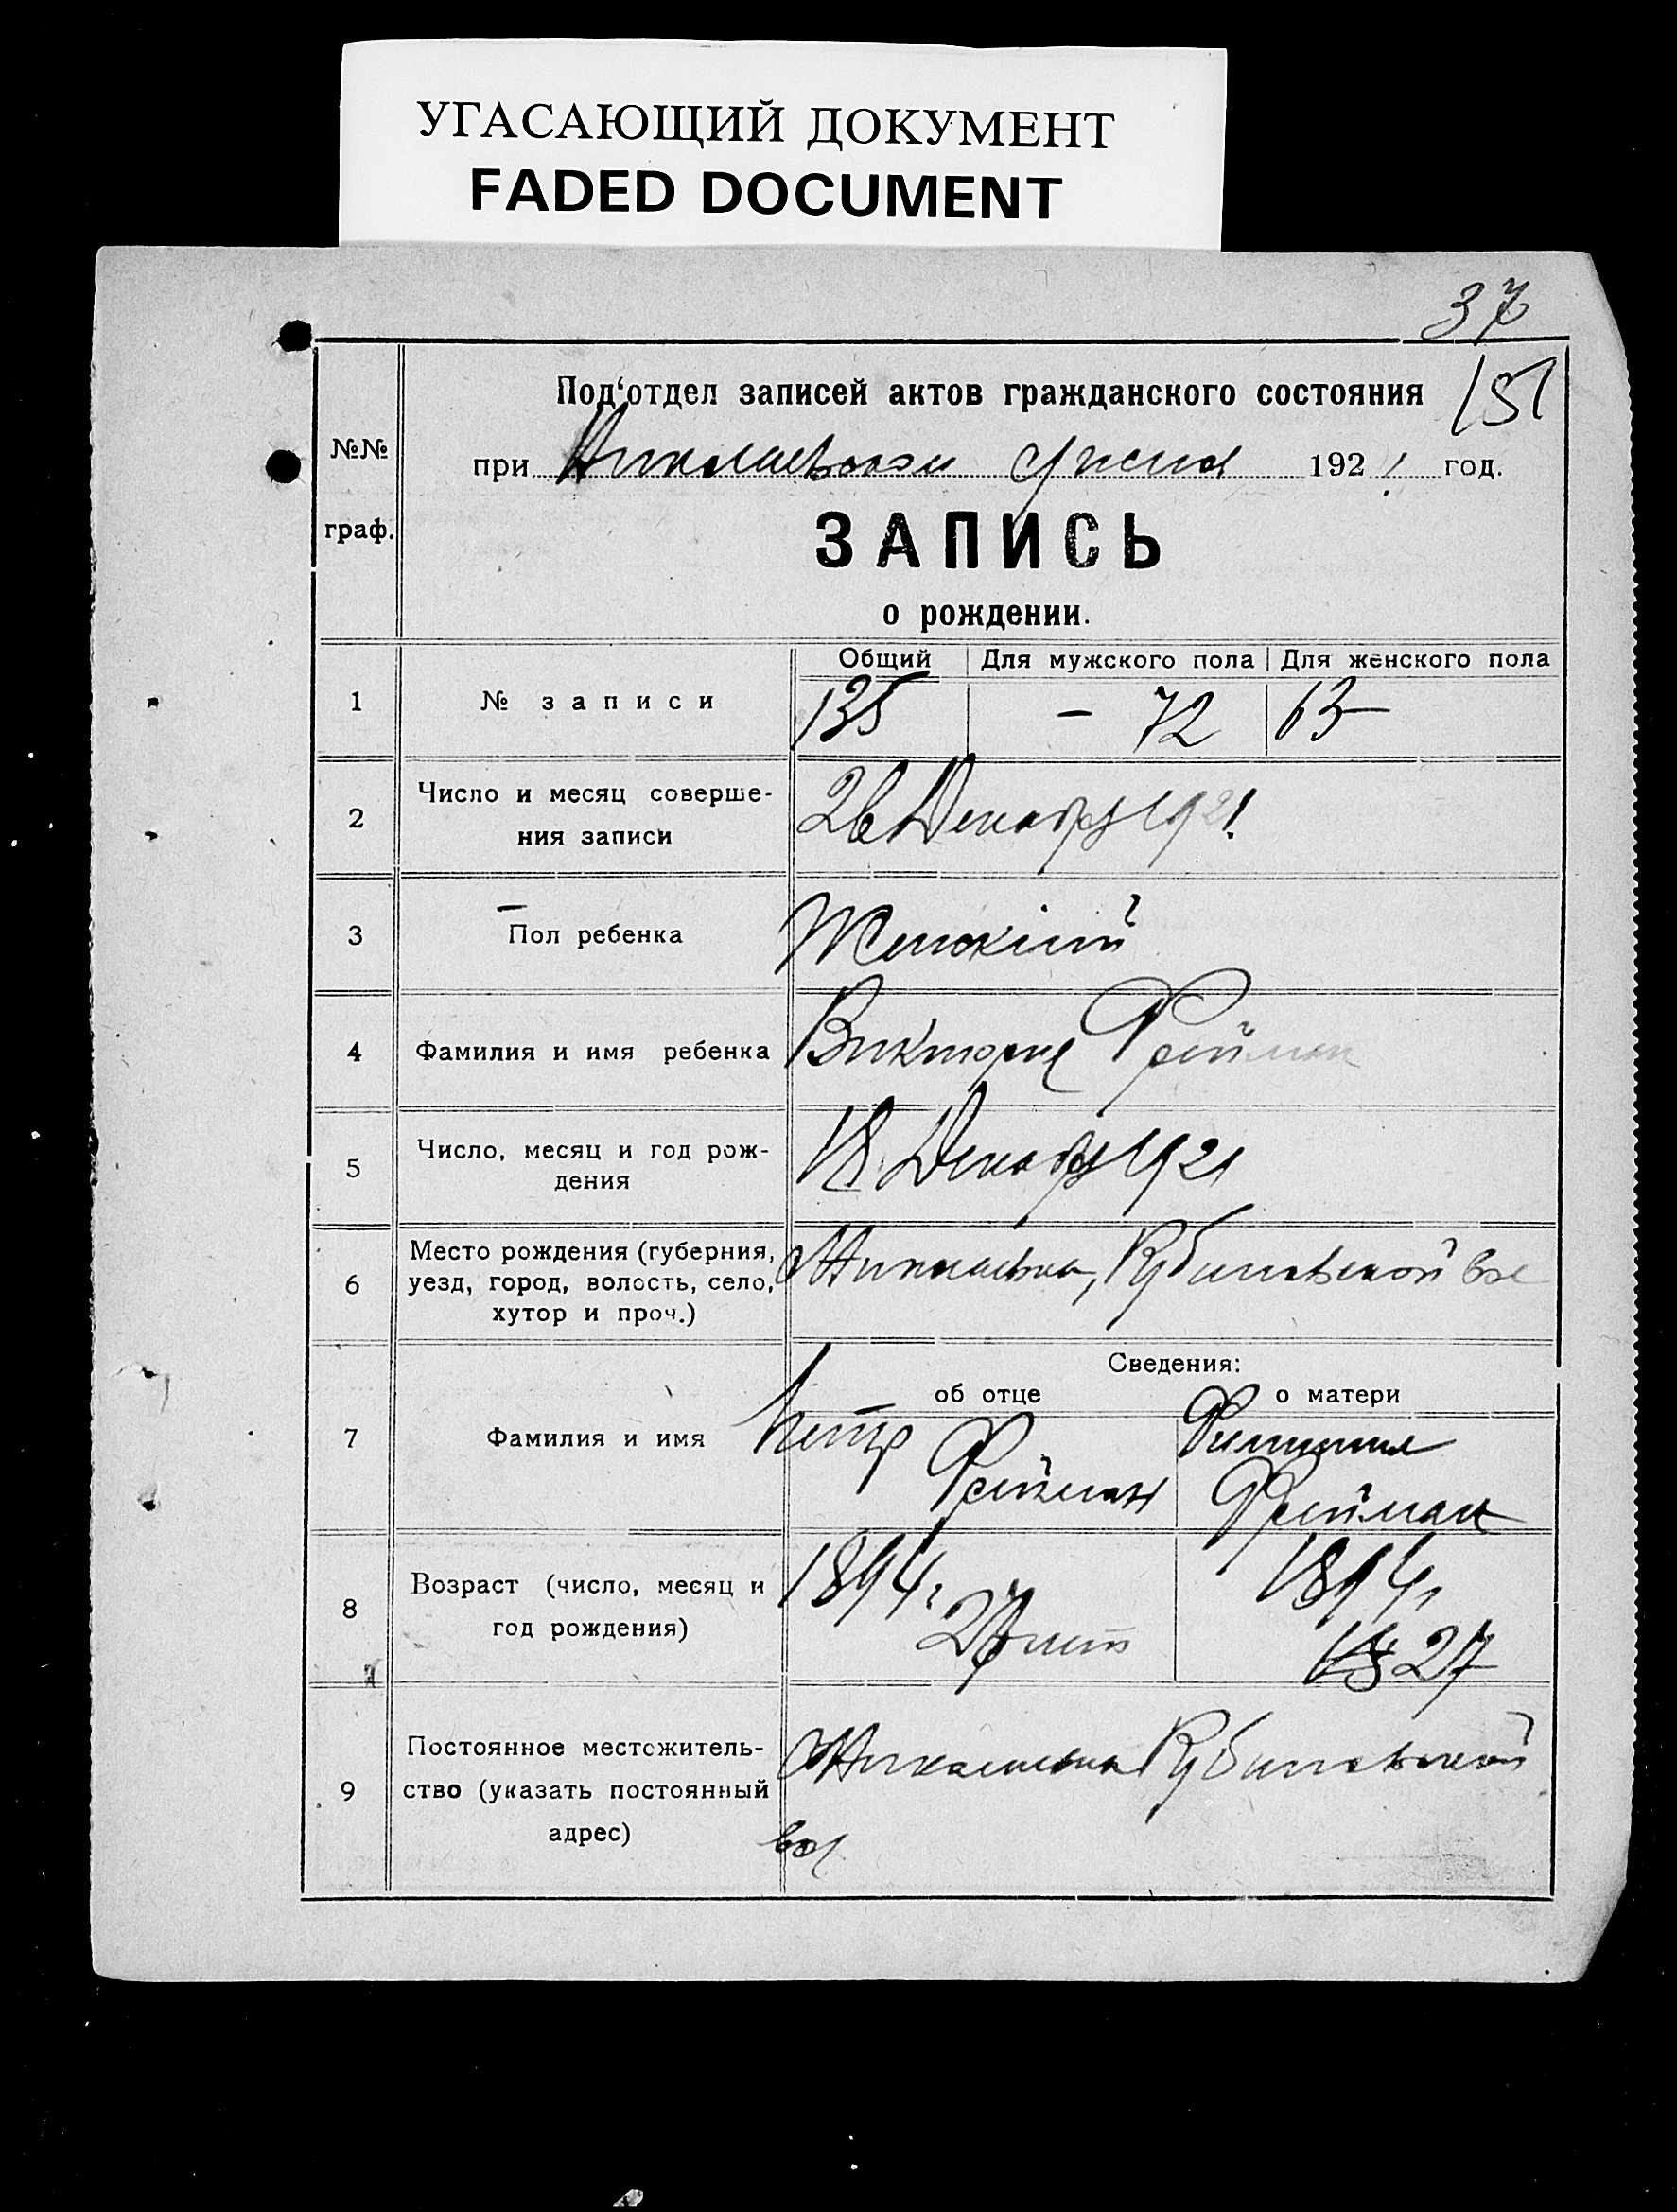 УГАСАЮЩИЙ ДОКУМЕНТ
FADED DOCUMENT
37
Под‘отдел записей актов гражданского состояния
151
№№
при 192 1 год.
граф.
ЗАПИСЬ
о рождении.
Общий Для мужского пола Для женского пола
1 № записи 135 – 72 63
2 Число и месяц соверше-
ния записи
26 Декабря 1921.
3 Пол ребенка Женскій
4 Фамилия и имя ребенка Виктория Рейман
5 Число, месяц и год рож-
дения
18 Декабря 1921
6 Место рождения (губерния,
уезд, город, волость, село,
хутор и проч.)
Николаевка, вол
Сведения:
об отце о матери
7 Фамилия и имя Петр
Рейман Рейман
8 Возраст (число, месяц и
год рождения)
1894г. 1894г.
27 лет 27
9 Постоянное местожитель-
ство (указать постоянный
адрес)
Николаевка
вол